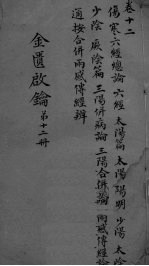 卷十二
傷寒六經總論 六經 太陽篇 太陽 陽明 少陽 太陰
少陰 厥陰篇 三陽併病論 三陽合病篇 兩感傳經論
通按合併兩感傳經辨
金匱啟鑰 第十二册